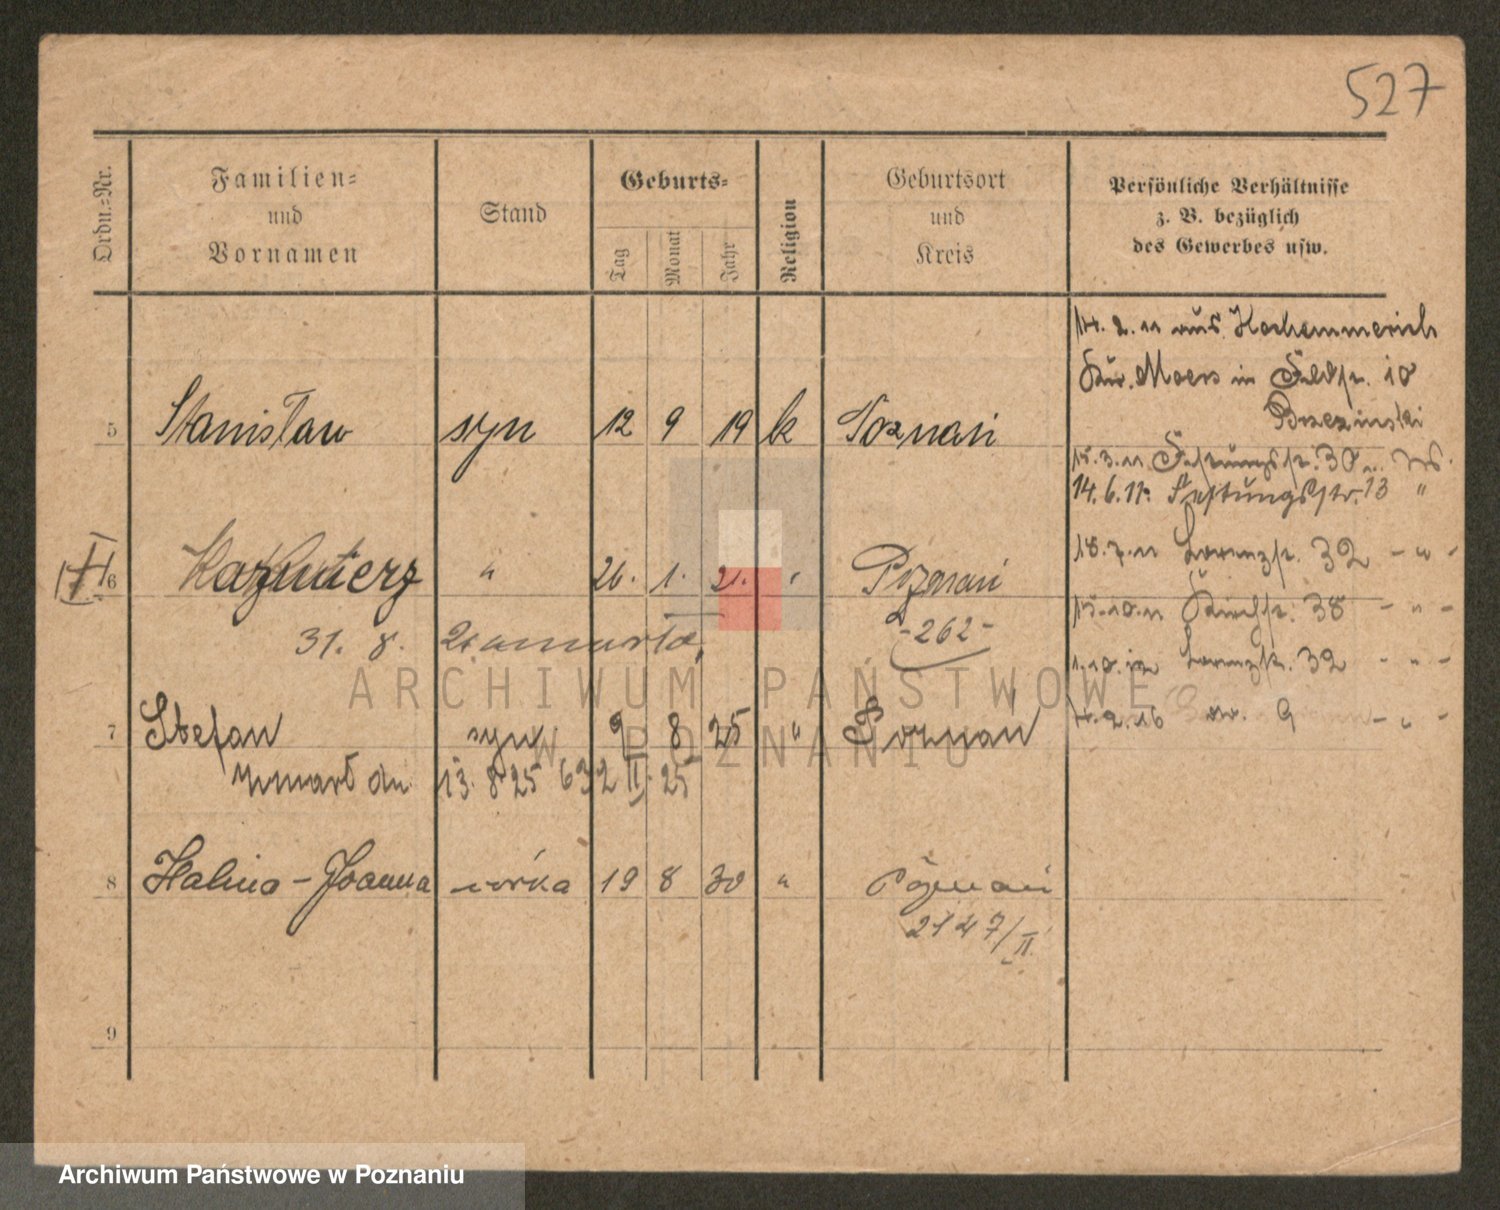 527
Ordn.-Nr.
Familien-
und
Vornamen
Stand
Geburts-
Tag
Monat
Jahr
Religion
Geburtsort
und
Kreis
Persönliche Verhältnisse
z. B. bezüglich
des Gewerbes usw.
14. 2. 11 aus Hochemmerich
Kr. Moers in Feldstr. 10
Brzezinski
5 Stanisław syn 12 9 19 k Poznań
15. 3. 11 Festungsstr. 30
14. 6. 11 Festungsstr. 13 "
18. 7. 11 Lorenzstr. 32 - " -
6 Kazimierz " 26. 1. 21. " Poznań
15. 10. 11 Kirchstr. 38 - " -
31. 8. 21 umarła,
- 262 -
1. 10. 12 Lorenzstr. 32 - " -
7 Stefan syn 2 8 25 " Poznań
4. 2. 16 9 - " -
zmarł dn. 13. 8. 25 632 II. 25
8 Halina - Joanna córka 19 8 30 " Poznań
2147/II
9
ARCHIWUM PAŃSTWOWE
W POZNANIU
Archiwum Państwowe w Poznaniu